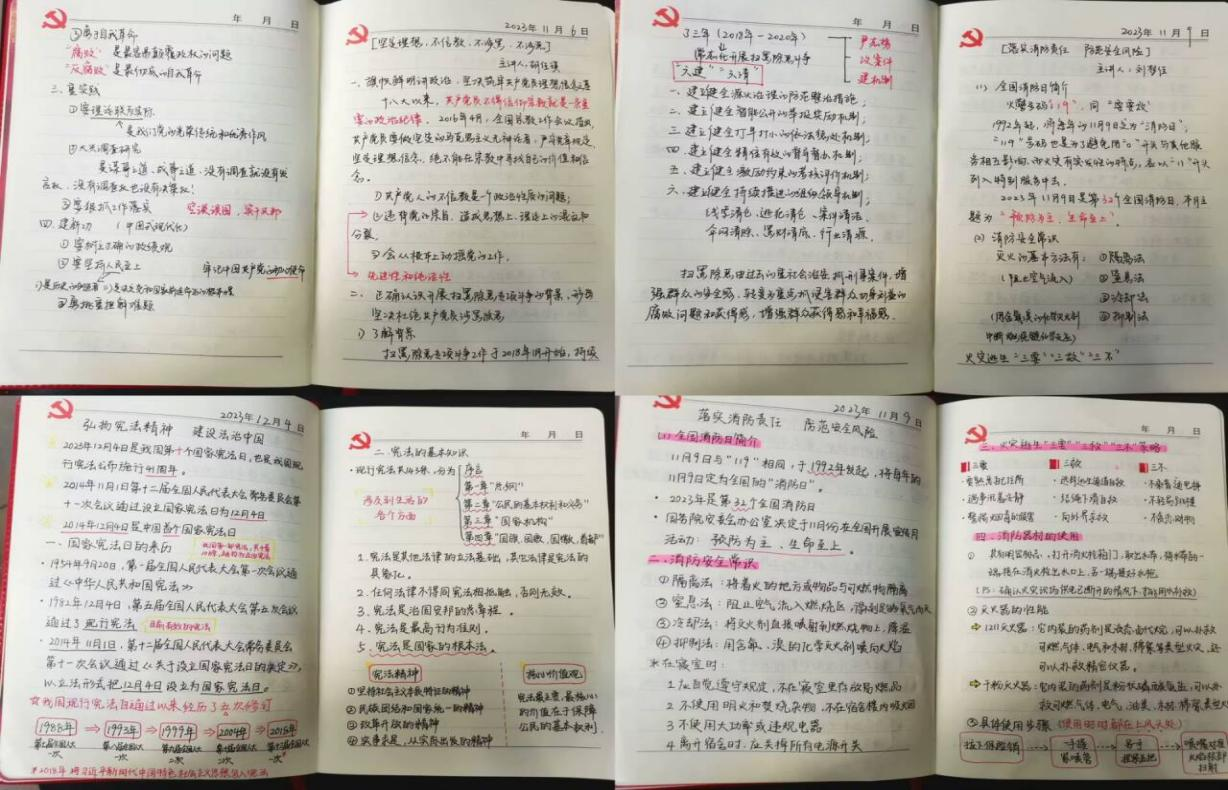 年 月 日
③勇于自我革命
"腐败"是最容易颠覆政权的问题
"反腐败"是最彻底的自我革命
三.重实践
①要理论联系实际
是我们党的光荣传统和优良作风
②大兴调查研究
是谋事之道、成事之道、没有调查就没有发
言权,没有调查权也没有决策权!
③要狠抓工作落实 空谈误国,实干兴邦
四.建新功 (中国式现代化)
①要树立正确的政绩观
②要坚持人民至上 牢记中国共产党的初心使命
③要担重担解难题
2023年 11月 6日
[坚定理想、不信教、不涉黑、不涉恶]
主讲人:
一、旗帜鲜明讲政治,坚决筑牢共产党员理想信念篇
十八大以来,共产党员不得信仰宗教就是一条重
要的政治纪律。2016年4月,全国宗教工作会议指出,
共产党员要做坚定的马克思主义无神论者,严守党章规定,
坚定理想信念,绝不能在宗教中寻找自己的价值和信
念。
①共产党人的不信教是一个政治性质的问题;
②违背党的宗旨,造成思想上、理论上的混乱和
分裂。
③会从根本上动摇党的工作。
先进性和纯洁性
二、正确认识开展扫黑除恶专项斗争的背景,
坚决杜绝共产党员涉黑涉恶
1)了解背景
扫黑除恶专项斗争工作于2018年1月开始,持续
年 月 日
了三年(2018年-2020年)
常态化开展扫黑除恶斗争
"六建""六清"
一、建立健全源头治理的防范整治措施;
二、建立健全智能公开的举报奖励机制;
三、建立健全打早打小的依法惩处机制;
四、建立健全精准有效的督导督办机制;
五、建立健全激励约束的考核评价机制;
六、建立健全持续推进的组织领导机制;
线索清仓、逃犯清仓、案件清结、
伞网清除、黑财清底、行业清源。
扫黑除恶由过去的重社会治安和刑事案件,增
强群众的安全感,转变为重点抓侵害群众切身利益的
腐败问题和获得感,增强群众获得感和幸福感.
2023年 11月 9日
[落实消防责任 防范安全风险]
主讲人:
(1) 全国消防日简介
火警号码"119",同"要要救"
1992年起,将每年的11月9日定为"消防日";
"119"号码也是为了避免因"0"开头与其他服
务相互影响,而火灾有突发性的特点,应以"11"开头
列入特别服务中去.
2023年11月9日是第32个全国消防日,本月主
题为"预防为主、生命至上"
(2) 消防安全常识
灭火的基本方法有: ①隔离法
(阻止空气流入) ②窒息法
③冷却法
④抑制法
火灾逃生"三要""三救""三不"
2023年 12月 4日
弘扬宪法精神 建设法治中国
2023年12月4日是我国第十个国家宪法日,也是我国现
行宪法公布施行41周年。
2014年11月1日第十二届全国人民代表大会常务委员会第
十一次会议通过设立国家宪法日为12月4日
2014年12月4日是中国首个国家宪法日
一、国家宪法日的来历
·1954年9月20日,第一届全国人民代表大会第一次会议通
过《中华人民共和国宪法》
·1982年12月4日,第五届全国人民代表大会第五次会议
通过了现行宪法 目前有效的宪法
·2014年11月1日,第十二届全国人民代表大会常务委员会
第十一次会议通过《关于设立国家宪法日的决定》,
以立法形式把12月4日设立为国家宪法日。
☆我国现行宪法自通过以来经历了五次修订
1988年 ⇒ 1993年 ⇒ 1999年 ⇒ 2004年 ⇒ 2018年
*2018年将习近平新时代中国特色社会主义思想写入宪法
年 月 日
二.宪法的基本知识
·现行宪法共143条,分为 序言
第一章"总纲"
涉及到生活的 第二章"公民的基本权利和义务"
各个方面 第三章"国家机构"
第四章"国旗、国歌、国徽、首都"
1.宪法是其他法律的立法基础,其它法律是宪法的
具体化。
2.任何法律不得同宪法相抵触,否则无效。
3.宪法是治国安邦的总章程。
4.宪法是最高行为准则。
5.宪法是国家的根本法。
宪法精神 核心价值观
①坚持社会主义本质特征的精神
②民族团结和国家统一的精神
③改革开放的精神
④实事求是,从实际出发的精神
宪法最主要,最核心
的价值在于保障
公民的基本权利
2023年 11月 9日
落实消防责任 防范安全风险
(1)全国消防日简介
11月9日与"119"相同,于1992年发起,将每年的
11月9日定为全国的"消防日"。
·2023年是第32个全国消防日
·国务院安委会办公室决定于11月份在全国开展宣传月
活动:预防为主、生命至上。
二.消防安全常识
①隔离法:将着火的地方或物品与可燃物隔离
②窒息法:阻止空气流入燃烧区,
③冷却法:将灭火剂直接喷射到燃烧物上,降温
④抑制法:用含氟、溴的化学灭火剂喷向火焰
*在寝室时:
1.应自觉遵守规定,不在寝室里存放易燃品
2.不使用明火和焚烧杂物,不在宿舍楼内吸烟
3.不使用大功率或违规电器
4.离开宿舍时,应关掉所有电源开关
年 月 日
三.火灾逃生"三要""三救""三不"策略
三要 三救 三不
·要熟悉住所 ·选择逃生通道自救 ·不乘普通电梯
·遇事沉着冷静 ·结绳下滑自救 ·不轻易跳楼
·警惕烟毒的侵害 ·向外界求救 ·不贪恋财物
四.消防器材的使用
②灭火器的性能
⇨1211灭火器:
⇨干粉灭火器:
③具体使用步骤(使用时身部在上风头处)
拔下保险销